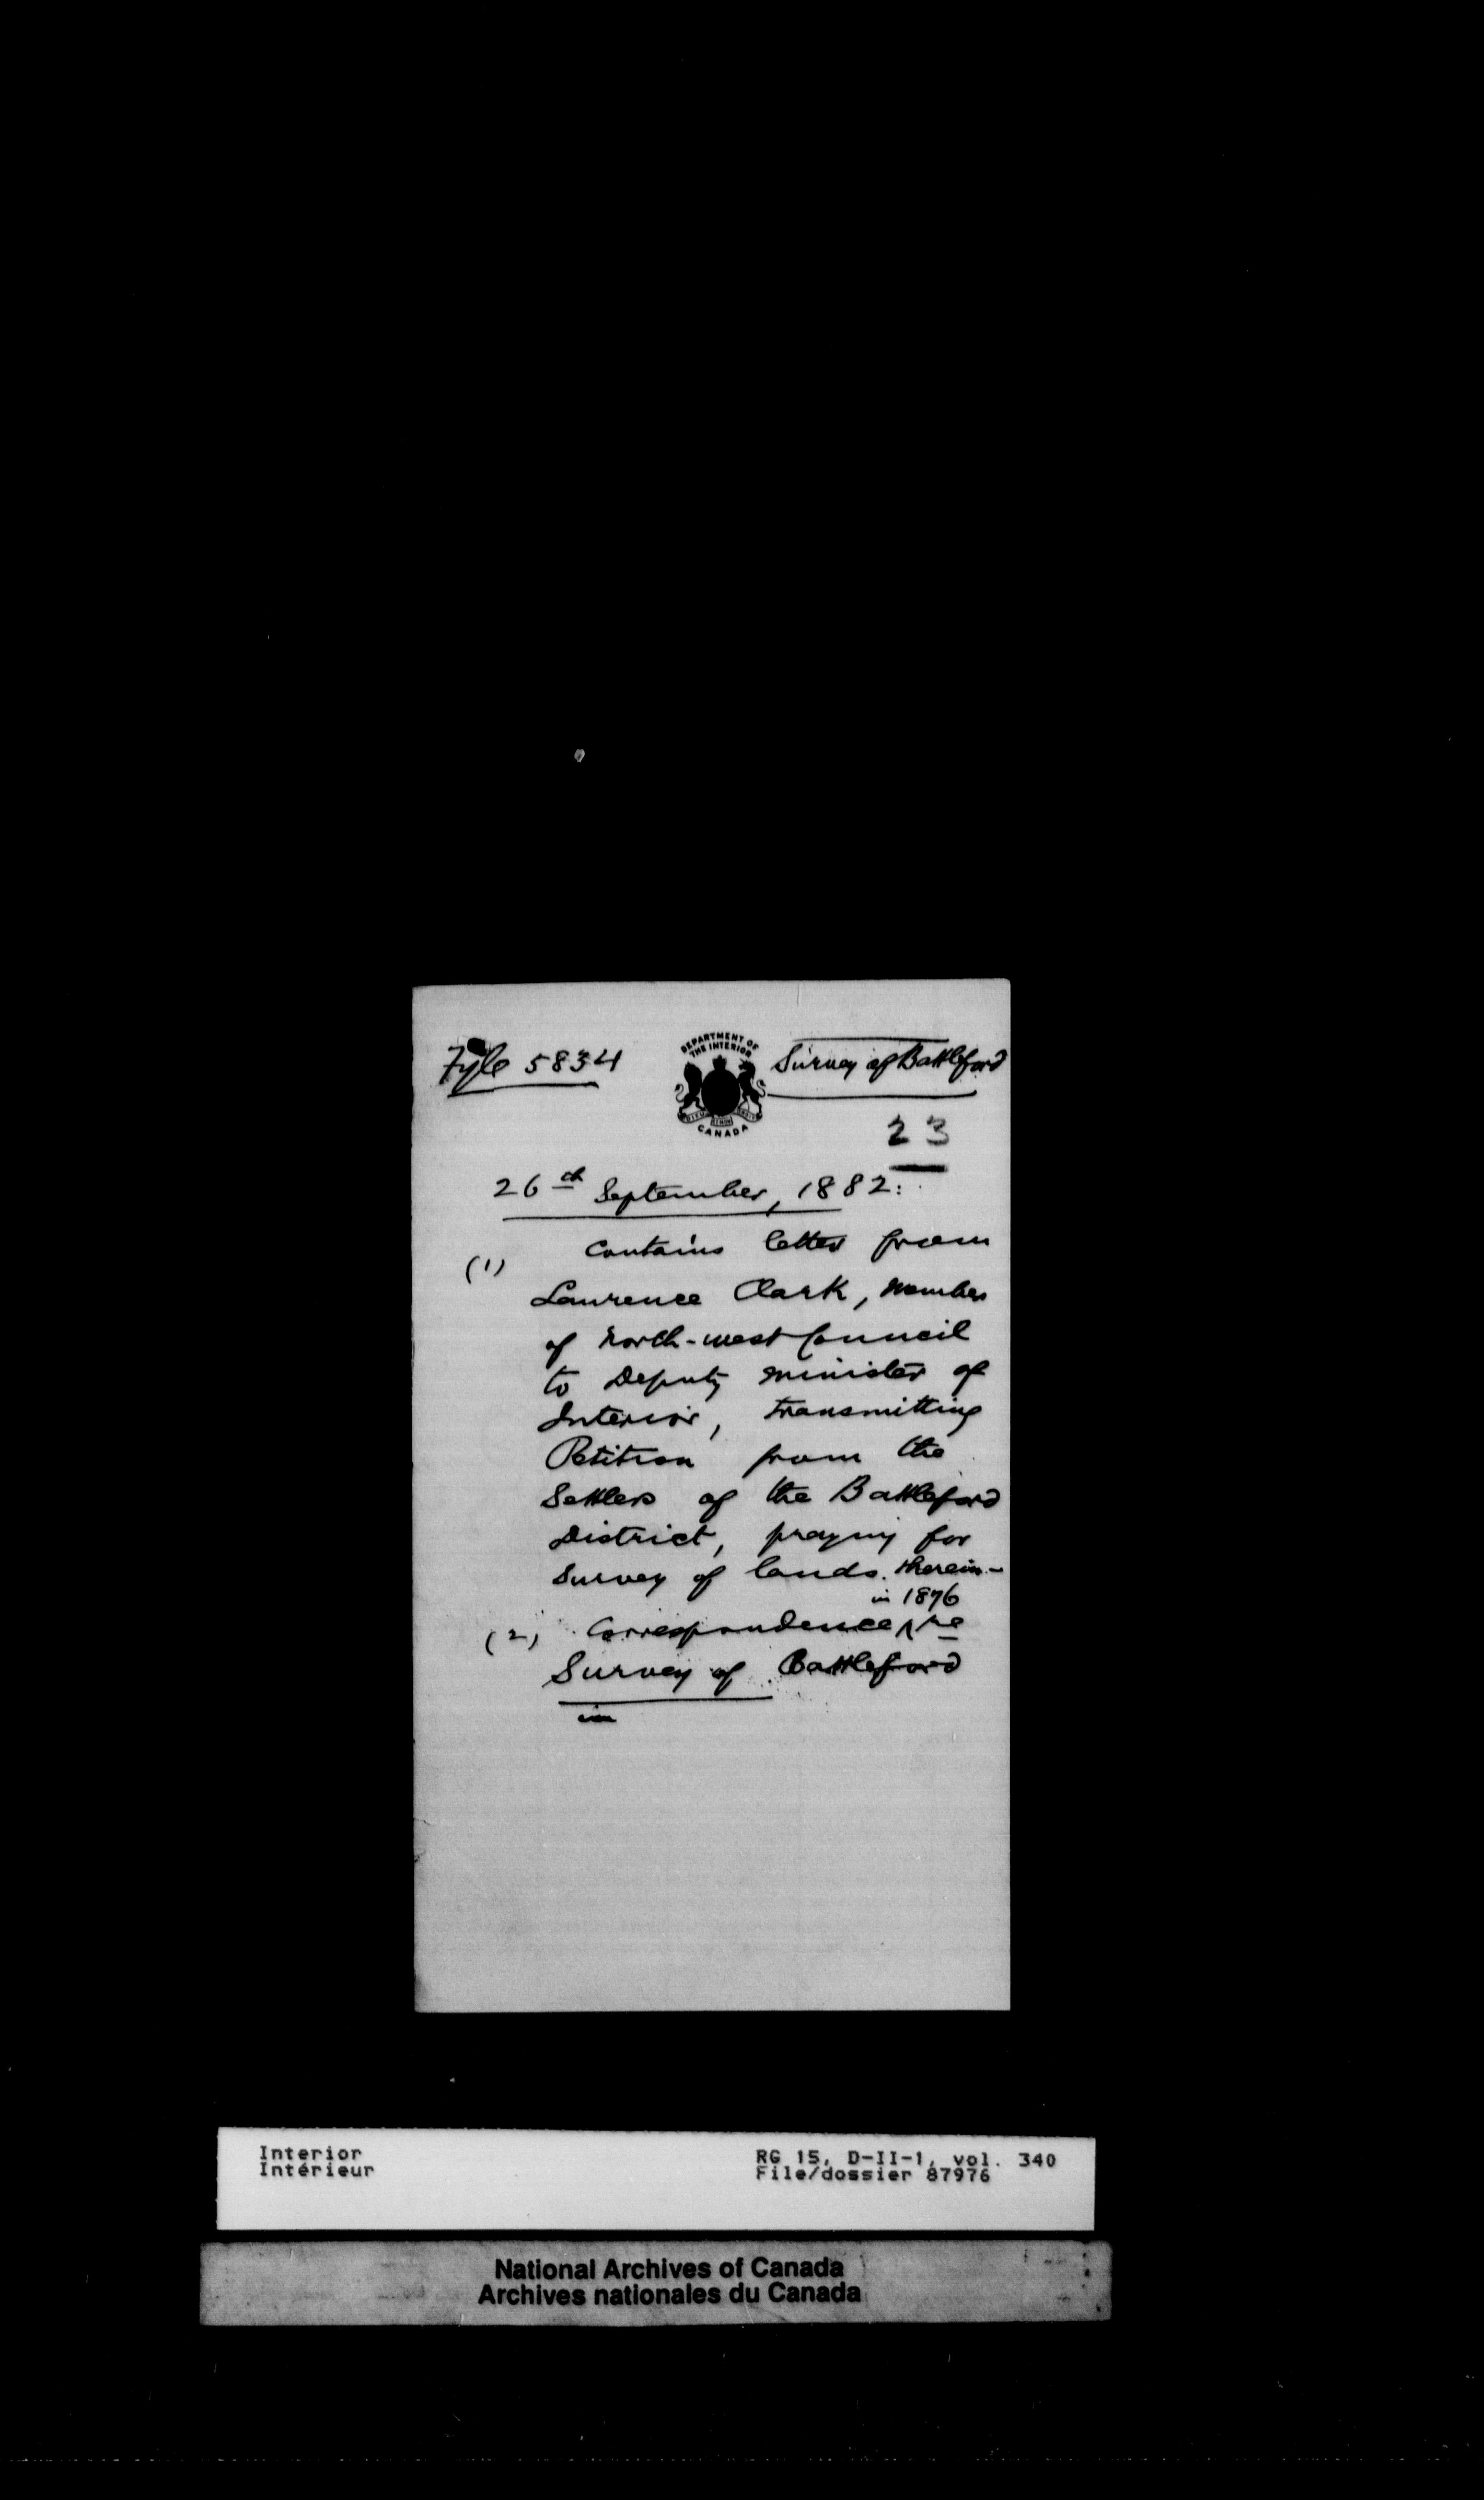 Fyle 5834
DEPARTMENT OF
THE INTERIOR
CANADA
Survey of Battleford
23
26th September, 1882:
(1) Contains letter from
Lawrence Clark, Member
of North-west Council
to Deputy Minister of
Interior, transmitting
Petition from the
Settlers of the Battleford
District, praying for
Survey of lands therein -
in 1876
(2) Correspondence ^ re
Survey of Battleford
in
Interior
Intérieur
RG 15, D-II-1, vol. 340
File/dossier 87976
National Archives of Canada
Archives nationales du Canada